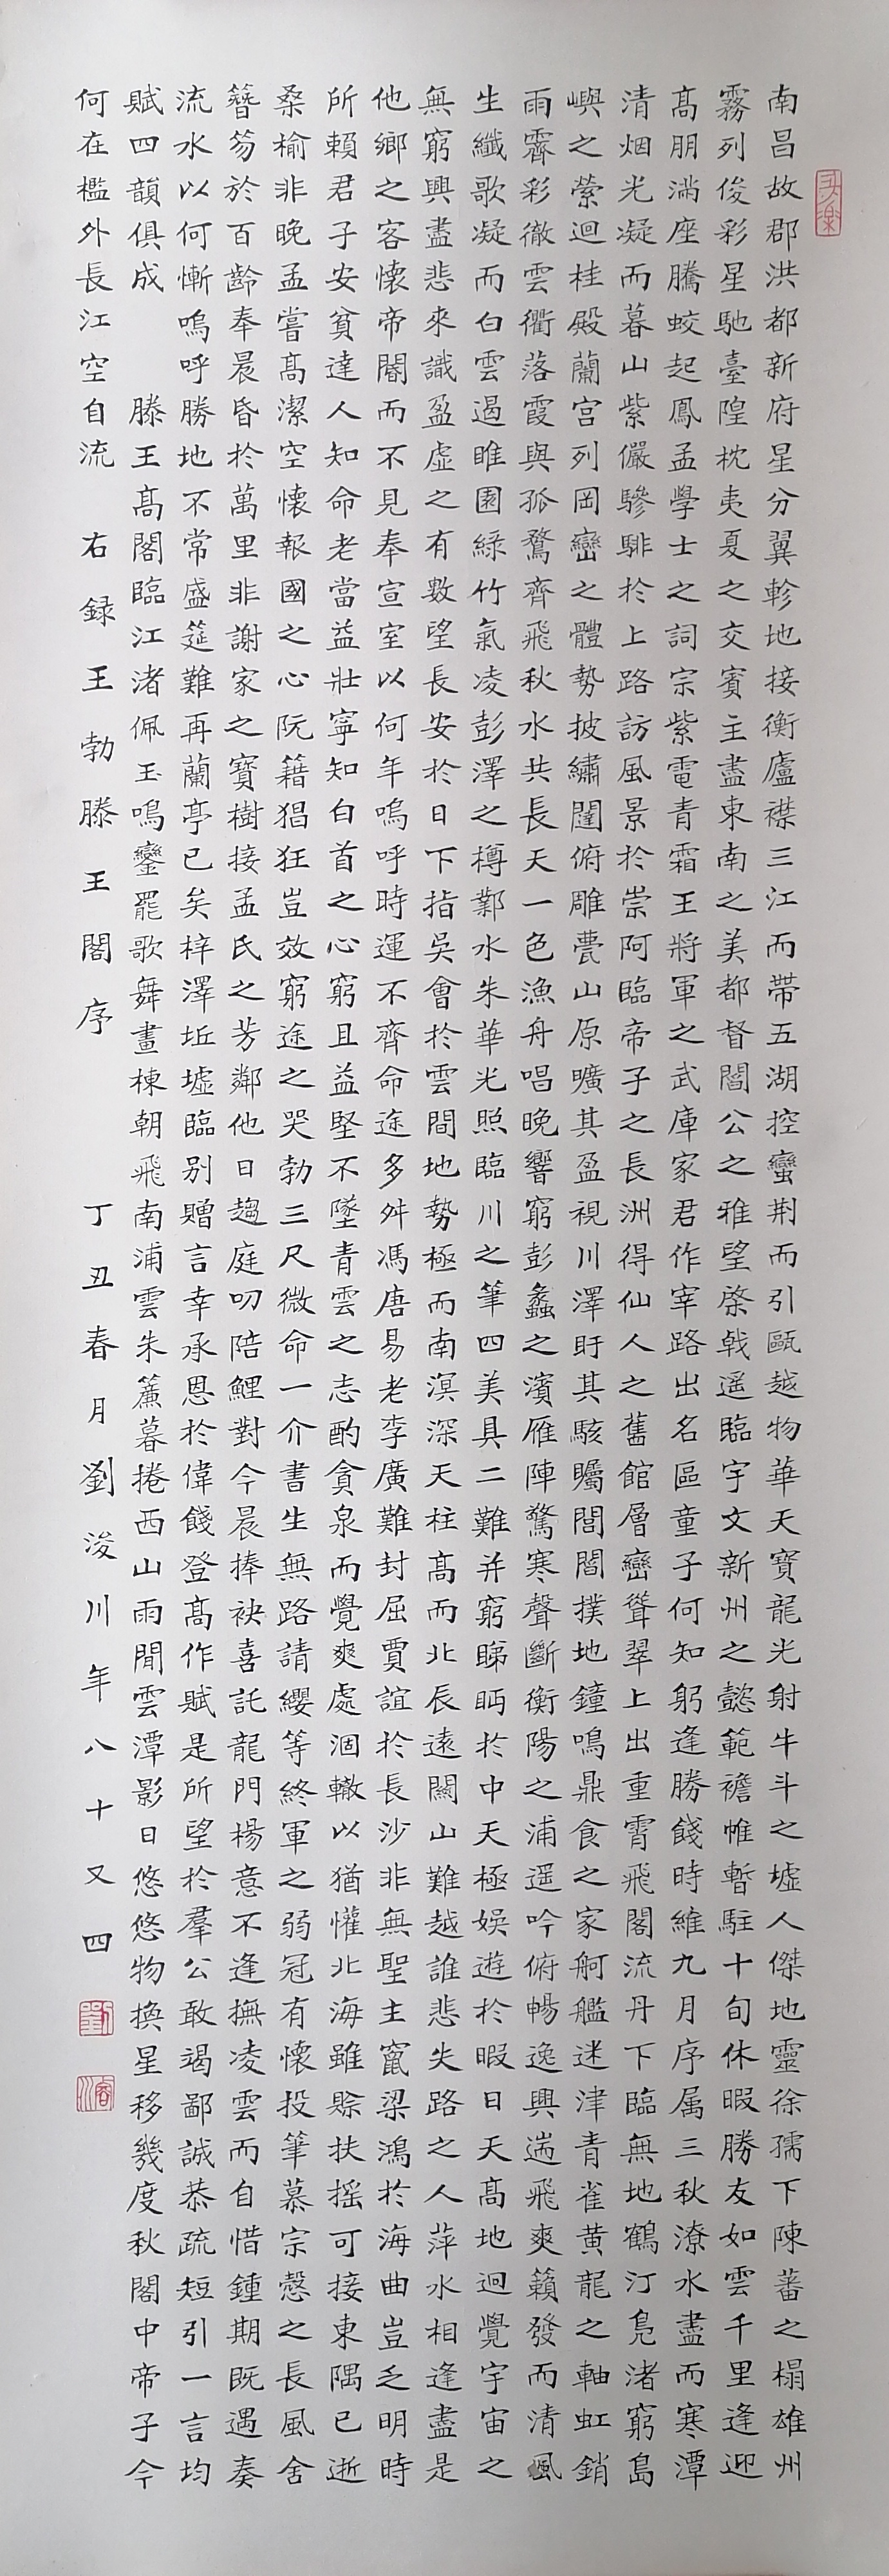 南昌故郡洪都新府星分翼軫地接衡廬襟三江而帶五湖控蠻荆而引甌越物華天寶龍光射牛斗之墟人傑地靈徐孺下陳蕃之榻雄州
霧列俊彩星馳臺隍枕夷夏之交賓主盡東南之美都督閻公之雅望棨戟遥臨宇文新州之懿範襜帷暫駐十旬休暇勝友如雲千里逢迎
髙朋滿座騰蛟起鳳孟學士之詞宗紫電青霜王將軍之武庫家君作宰路出名區童子何知躬逢勝餞時維九月序属三秋潦水盡而寒潭
清烟光凝而暮山紫儼驂騑於上路訪風景於崇阿臨帝子之長洲得仙人之舊館層巒聳翠上出重霄飛閣流丹下臨無地鶴汀鳧渚窮島
嶼之縈迴桂殿蘭宫列岡巒之體勢披繡闥俯雕甍山原曠其盈視川澤盱其駭矚閭閻撲地鐘鳴鼎食之家舸艦迷津青雀黄龍之軸虹銷
雨霽彩徹雲衢落霞與孤鶩齊飛秋水共長天一色漁舟唱晚響窮彭蠡之濱雁陣驚寒聲斷衡陽之浦遥吟俯暢逸興遄飛爽籟發而清風
生纖歌凝而白雲遏睢園緑竹氣凌彭澤之樽鄴水朱華光照臨川之筆四美具二難并窮睇眄於中天極娱遊於暇日天髙地迥覺宇宙之
無窮興盡悲來識盈虚之有數望長安於日下指吳會於雲間地勢極而南溟深天柱髙而北辰遠關山難越誰悲失路之人萍水相逢盡是
他鄉之客懷帝閽而不見奉宣室以何年嗚呼時運不齊命途多舛馮唐易老李廣難封屈賈誼於長沙非無聖主竄梁鴻於海曲豈乏明時
所賴君子安貧達人知命老當益壯寧知白首之心窮且益堅不墜青雲之志酌貪泉而覺爽處涸轍以猶懽北海雖賒扶摇可接東隅已逝
桑榆非晚孟嘗髙潔空懷報國之心阮籍猖狂豈效窮途之哭勃三尺微命一介書生無路請纓等終軍之弱冠有懷投筆慕宗慤之長風舍
簪笏於百齡奉晨昏於萬里非謝家之寶樹接孟氏之芳鄰他日趨庭叨陪鯉對今晨捧袂喜託龍門楊意不逢撫凌雲而自惜鍾期既遇奏
流水以何慚嗚呼勝地不常盛筵難再蘭亭已矣梓澤坵墟臨别贈言幸承恩於偉餞登髙作賦是所望於羣公敢竭鄙誠恭疏短引一言均
賦四韻俱成 滕王髙閣臨江渚佩玉鳴鑾罷歌舞畫棟朝飛南浦雲朱簾暮捲西山雨閒雲潭影日悠悠物換星移幾度秋閣中帝子今
何在檻外長江空自流 右録王勃滕王閣序 丁丑春月劉浚川年八十又四